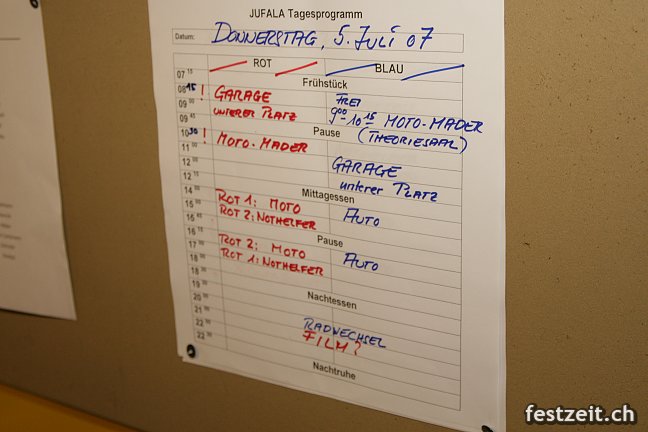 JUFALA Tagesprogramm
Datum: DONNERSTAG, 5. JULI 07
ROT BLAU
07 15 Frühstück
08 15 ! GARAGE FREI
09 00 UNTERER PLATZ 9 00 - 10 15 MOTO-MADER
09 45 (THEORIESAAL)
Pause
10 30 ! MOTO-MADER
11 00
GARAGE
12 00 unterer PLATZ
12 15
Mittagessen
14 00 ROT 1: MOTO AUTO
15 00 ROT 2: NOTHELFER
16 45 Pause
17 00 ROT 2: MOTO AUTO
18 00 ROT 1: NOTHELFER
18 30
Nachtessen
20 00
21 00 RADWECHSEL
22 00 FILM?
23 00
Nachtruhe
festzeit.ch